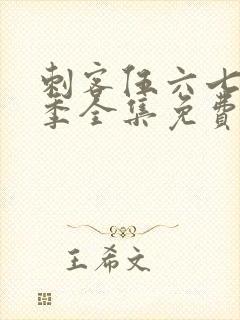 刺客伍六七
季全集免费
王希文